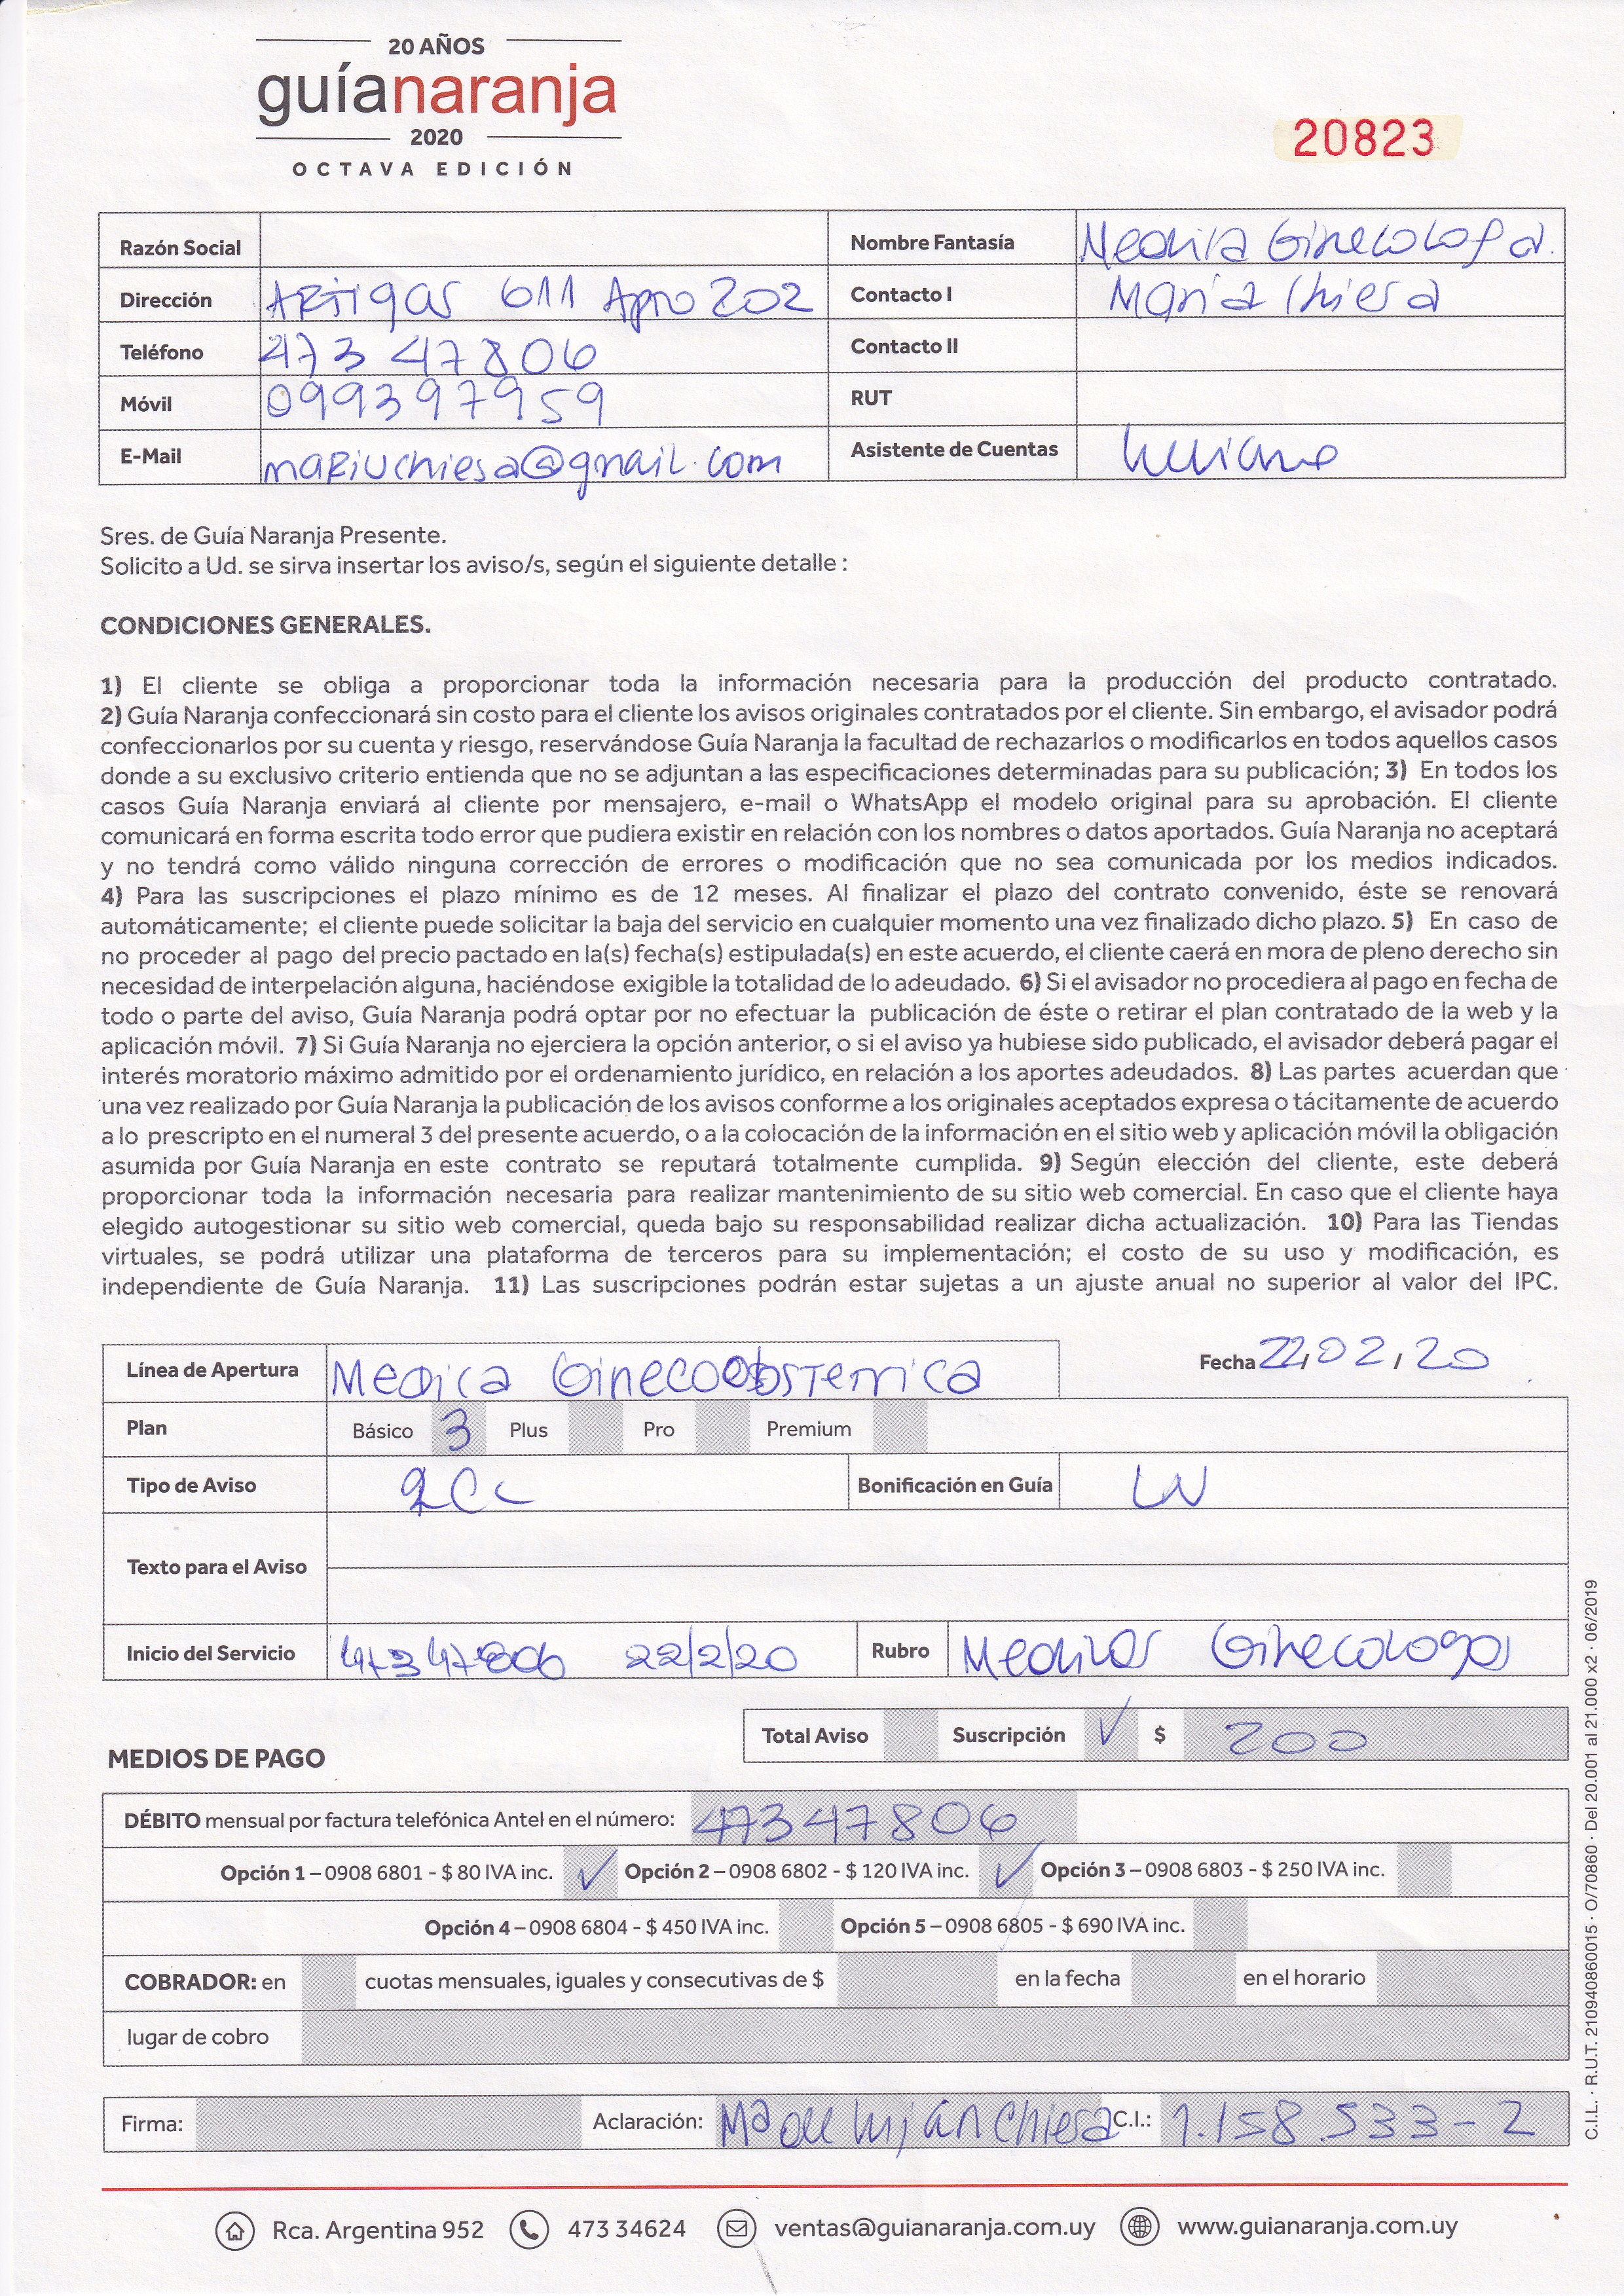 20 AÑOS
guíanaranja
2020
OCTAVA EDICIÓN
20823
Razón Social
Nombre Fantasía Medica Ginecologa.
Dirección ARTigas 611 Apto 202
Contacto I Maria Chiesa
Teléfono 473 47806
Contacto II
Móvil 099397959
RUT
E-Mail maRiuchiesa@gmail.com
Asistente de Cuentas
Sres. de Guía Naranja Presente.
Solicito a Ud. se sirva insertar los aviso/s, según el siguiente detalle :
CONDICIONES GENERALES.
1) El cliente se obliga a proporcionar toda la información necesaria para la producción del producto contratado.
2) Guía Naranja confeccionará sin costo para el cliente los avisos originales contratados por el cliente. Sin embargo, el avisador podrá
confeccionarlos por su cuenta y riesgo, reservándose Guía Naranja la facultad de rechazarlos o modificarlos en todos aquellos casos
donde a su exclusivo criterio entienda que no se adjuntan a las especificaciones determinadas para su publicación; 3) En todos los
casos Guía Naranja enviará al cliente por mensajero, e-mail o WhatsApp el modelo original para su aprobación. El cliente
comunicará en forma escrita todo error que pudiera existir en relación con los nombres o datos aportados. Guía Naranja no aceptará
y no tendrá como válido ninguna corrección de errores o modificación que no sea comunicada por los medios indicados.
4) Para las suscripciones el plazo mínimo es de 12 meses. Al finalizar el plazo del contrato convenido, éste se renovará
automáticamente; el cliente puede solicitar la baja del servicio en cualquier momento una vez finalizado dicho plazo. 5) En caso de
no proceder al pago del precio pactado en la(s) fecha(s) estipulada(s) en este acuerdo, el cliente caerá en mora de pleno derecho sin
necesidad de interpelación alguna, haciéndose exigible la totalidad de lo adeudado. 6) Si el avisador no procediera al pago en fecha de
todo o parte del aviso, Guía Naranja podrá optar por no efectuar la publicación de éste o retirar el plan contratado de la web y la
aplicación móvil. 7) Si Guía Naranja no ejerciera la opción anterior, o si el aviso ya hubiese sido publicado, el avisador deberá pagar el
interés moratorio máximo admitido por el ordenamiento jurídico, en relación a los aportes adeudados. 8) Las partes acuerdan que
una vez realizado por Guía Naranja la publicación de los avisos conforme a los originales aceptados expresa o tácitamente de acuerdo
a lo prescripto en el numeral 3 del presente acuerdo, o a la colocación de la información en el sitio web y aplicación móvil la obligación
asumida por Guía Naranja en este contrato se reputará totalmente cumplida. 9) Según elección del cliente, este deberá
proporcionar toda la información necesaria para realizar mantenimiento de su sitio web comercial. En caso que el cliente haya
elegido autogestionar su sitio web comercial, queda bajo su responsabilidad realizar dicha actualización. 10) Para las Tiendas
virtuales, se podrá utilizar una plataforma de terceros para su implementación; el costo de su uso y modificación, es
independiente de Guía Naranja. 11) Las suscripciones podrán estar sujetas a un ajuste anual no superior al valor del IPC.
Línea de Apertura Medica Ginecoobstetrica
Fecha 22/02/20
Plan Básico 3 Plus Pro Premium
Tipo de Aviso
Bonificación en Guía LN
Texto para el Aviso
Inicio del Servicio 47347806 22/2/20
Rubro Medicos Ginecologos
Total Aviso Suscripción ✓ $ 200
MEDIOS DE PAGO
DÉBITO mensual por factura telefónica Antel en el número: 47347806
Opción 1 – 0908 6801 - $ 80 IVA inc. ✓ Opción 2 – 0908 6802 - $ 120 IVA inc. ✓ Opción 3 – 0908 6803 - $ 250 IVA inc.
Opción 4 – 0908 6804 - $ 450 IVA inc. Opción 5 – 0908 6805 - $ 690 IVA inc.
COBRADOR: en cuotas mensuales, iguales y consecutivas de $ en la fecha en el horario
lugar de cobro
Firma: Aclaración: Ma del Lujan Chiesa C.I.: 1.158.533-2
C.I.L. · R.U.T. 210940860015 · O/70860 · Del 20.001 al 21.000 x2 · 06/2019
Rca. Argentina 952 473 34624 ventas@guianaranja.com.uy www.guianaranja.com.uy